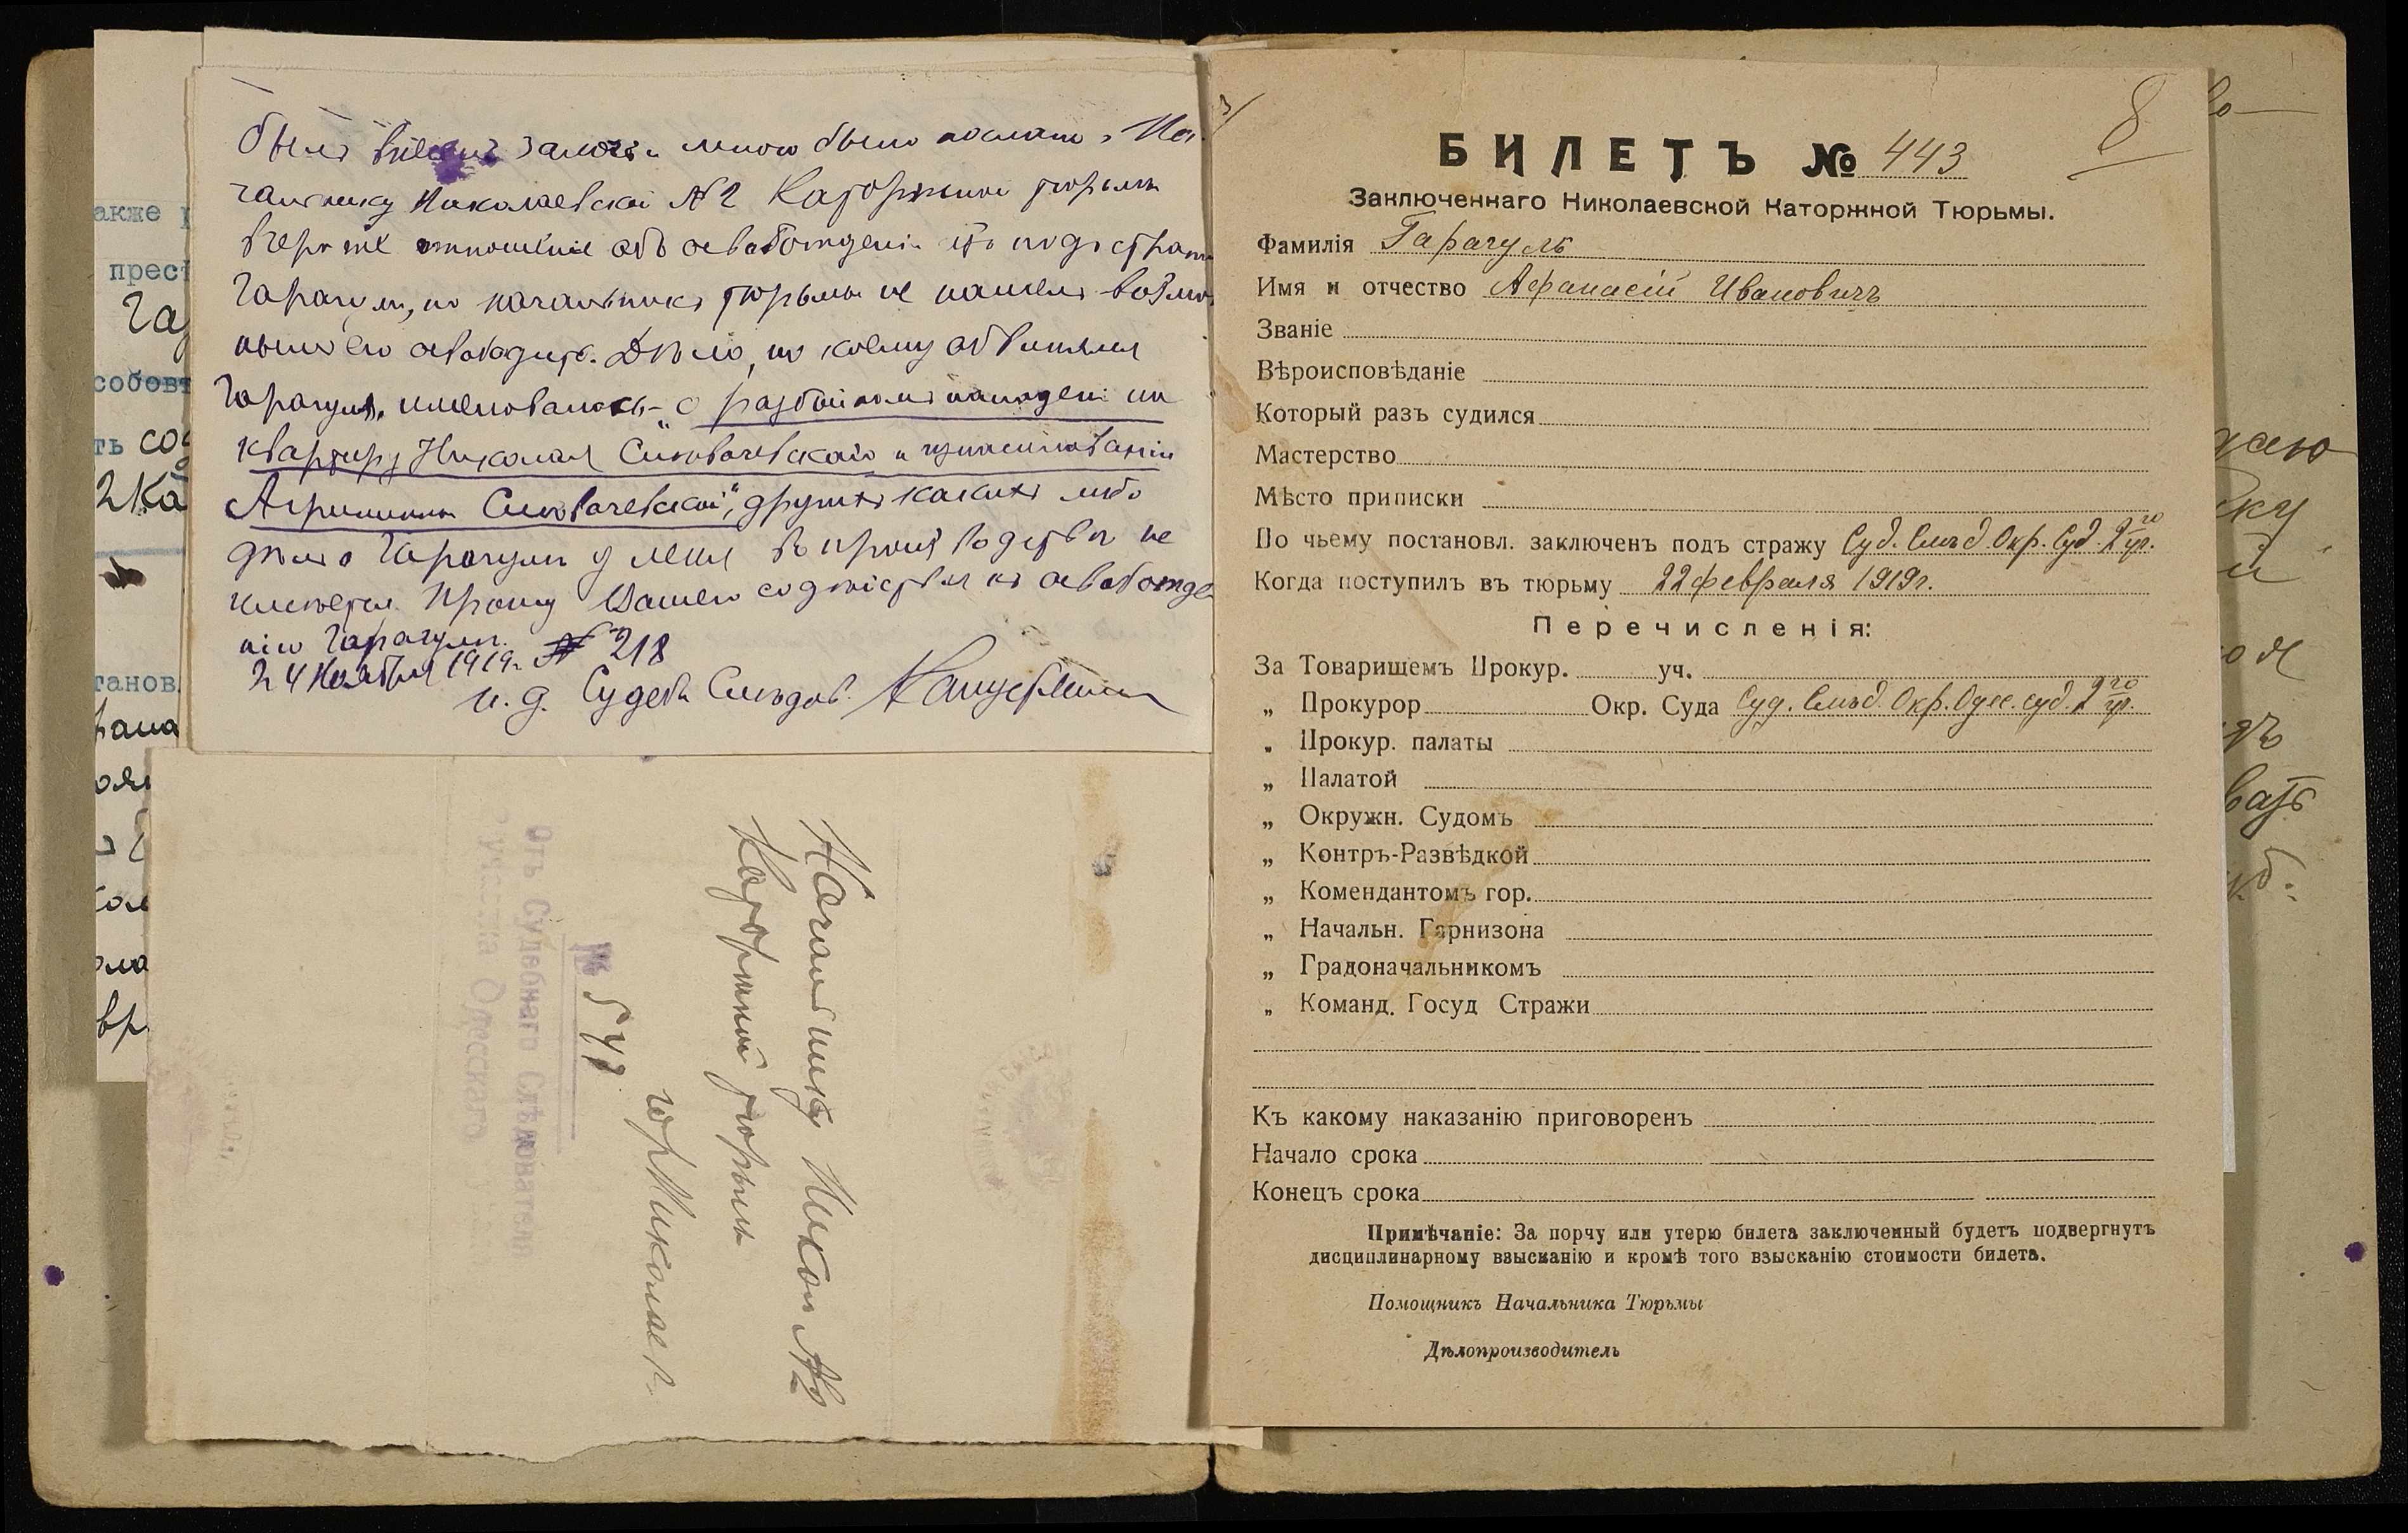 былъ внесенъ залогъ и мною было послано г. На-
чальнику Николаевской № 2 Каторжной тюрьмы
вчера же отношеніе объ освобожденіи изъ подъ стражи
Гарагули, но начальникъ тюрьмы не нашелъ возмо
нымъ его освободить. Дѣло, по коему обвинялся
Гарагуля, именовалось - „о разбойномъ нападеніи на
квартиру Николая и изнасилованіи
другихъ какихъ либо
дѣлъ о Гарагули у меня въ производствѣ не
имѣется. Прошу Вашего содѣйствія къ освобожде
нію Гарагули.
24 Ноября 1919 г. № 218
и. д. Судебн. Слѣдов.
Начальнику Никол. №2
Каторжной тюрьмы
гор. Николаев.
№ 547
Отъ Судебнаго Слѣдователя
участка Одесскаго
акже
прес
Га
собов
ть со
2 Ка
танов
рана
оля
вр
8
БИЛЕТЪ № 443
Заключеннаго Николаевской Каторжной Тюрьмы.
Фамилія Гарагуль
Имя и отчество Афанасій Ивановичъ
Званіе
Вѣроисповѣданіе
Который разъ судился
Мастерство
Мѣсто приписки
По чьему постановл. заключенъ подъ стражу Суд. Слѣд. Окр. Суд. 2го уч.
Когда поступилъ въ тюрьму 22 февраля 1919 г.
Перечисленія:
За Товарищемъ Прокур. уч.
„ Прокурор Окр. Суда Суд. Слѣд. Окр. Одес. суд. 2го уч.
„ Прокур. палаты
„ Палатой
„ Окружн. Судомъ
„ Контръ-Развѣдкой
„ Комендантомъ гор.
„ Начальн. Гарнизона
„ Градоначальникомъ
„ Команд. Госуд Стражи
Къ какому наказанію приговоренъ
Начало срока
Конецъ срока
Примѣчаніе: За порчу или утерю билета заключенный будетъ подвергнутъ
дисциплинарному взысканію и кромѣ того взысканію стоимости билета.
Помощникъ Начальника Тюрьмы
Дѣлопроизводитель
даю
ку
й
оя
дъ
вать